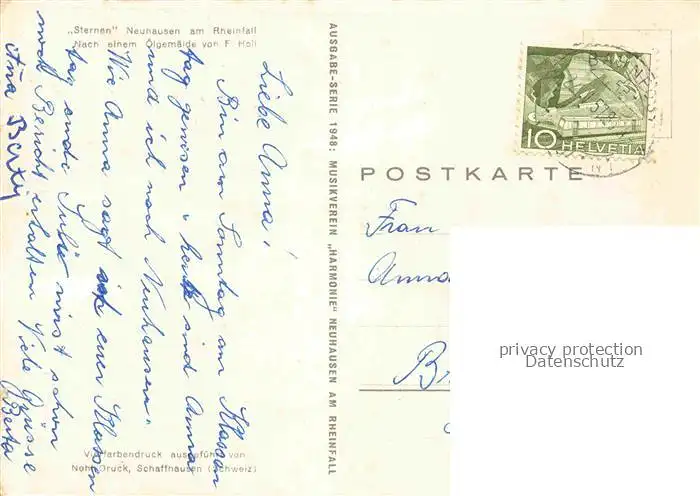 „Sternen" Neuhausen am Rheinfall
Nach einem Ölgemälde von F. Hall
Liebe Anna!
Bin am Sonntag am Klassen
tag gewesen, heute sind Anna
und ich nach Neuhausen.
Wie Anna sagt ist euer Klassen
tag ende Juli wirst schon
noch Bericht erhalten Viele Grüsse
Berta
Vierfarbendruck ausgeführt von
Nohl-Druck, Schaffhausen (Schweiz)
AUSGABE-SERIE 1948: MUSIKVEREIN „HARMONIE" NEUHAUSEN AM RHEINFALL
10 HELVETIA
POSTKARTE
Frau
Anna
privacy protection
Datenschutz